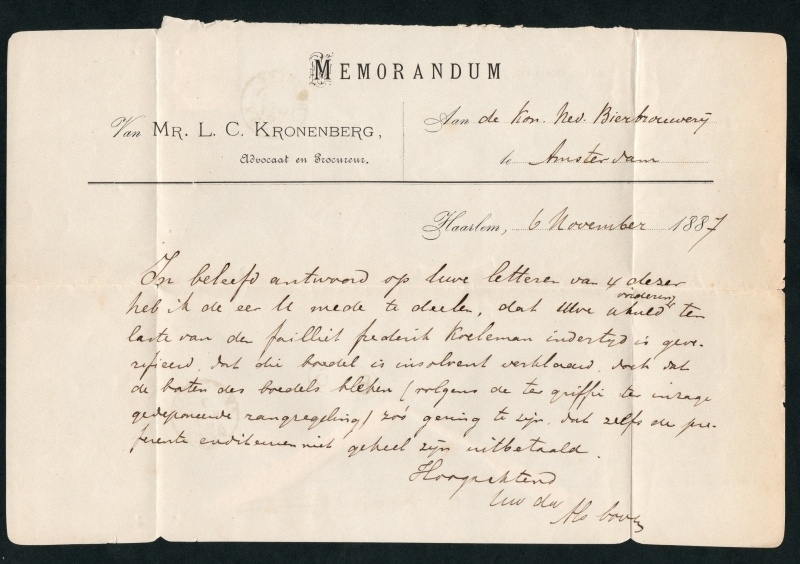 MEMORANDUM
Van MR. L. C. KRONENBERG,
Advocaat en Procureur.
Aan de Kon. Ned. Bierbrouwerij
te Amsterdam
Haarlem, 6 November 1887
In beleefd antwoord op Uwe letteren van 4 dezer
heb ik de eer U mede te deelen, dat Uwe vordering ten
laste van den failliet Frederik Koeleman indertijd is geve-
rifieerd, dat die boedel is insolvent verklaard, doch dat
de baten des boedels bleken (volgens de ter griffie ter inzage
gedeponeerde rangregeling) zoó gering te zijn, dat zelfs de pre-
ferente crediteuren niet geheel zijn uitbetaald.
Hoogachtend
Uw dw
Als boven